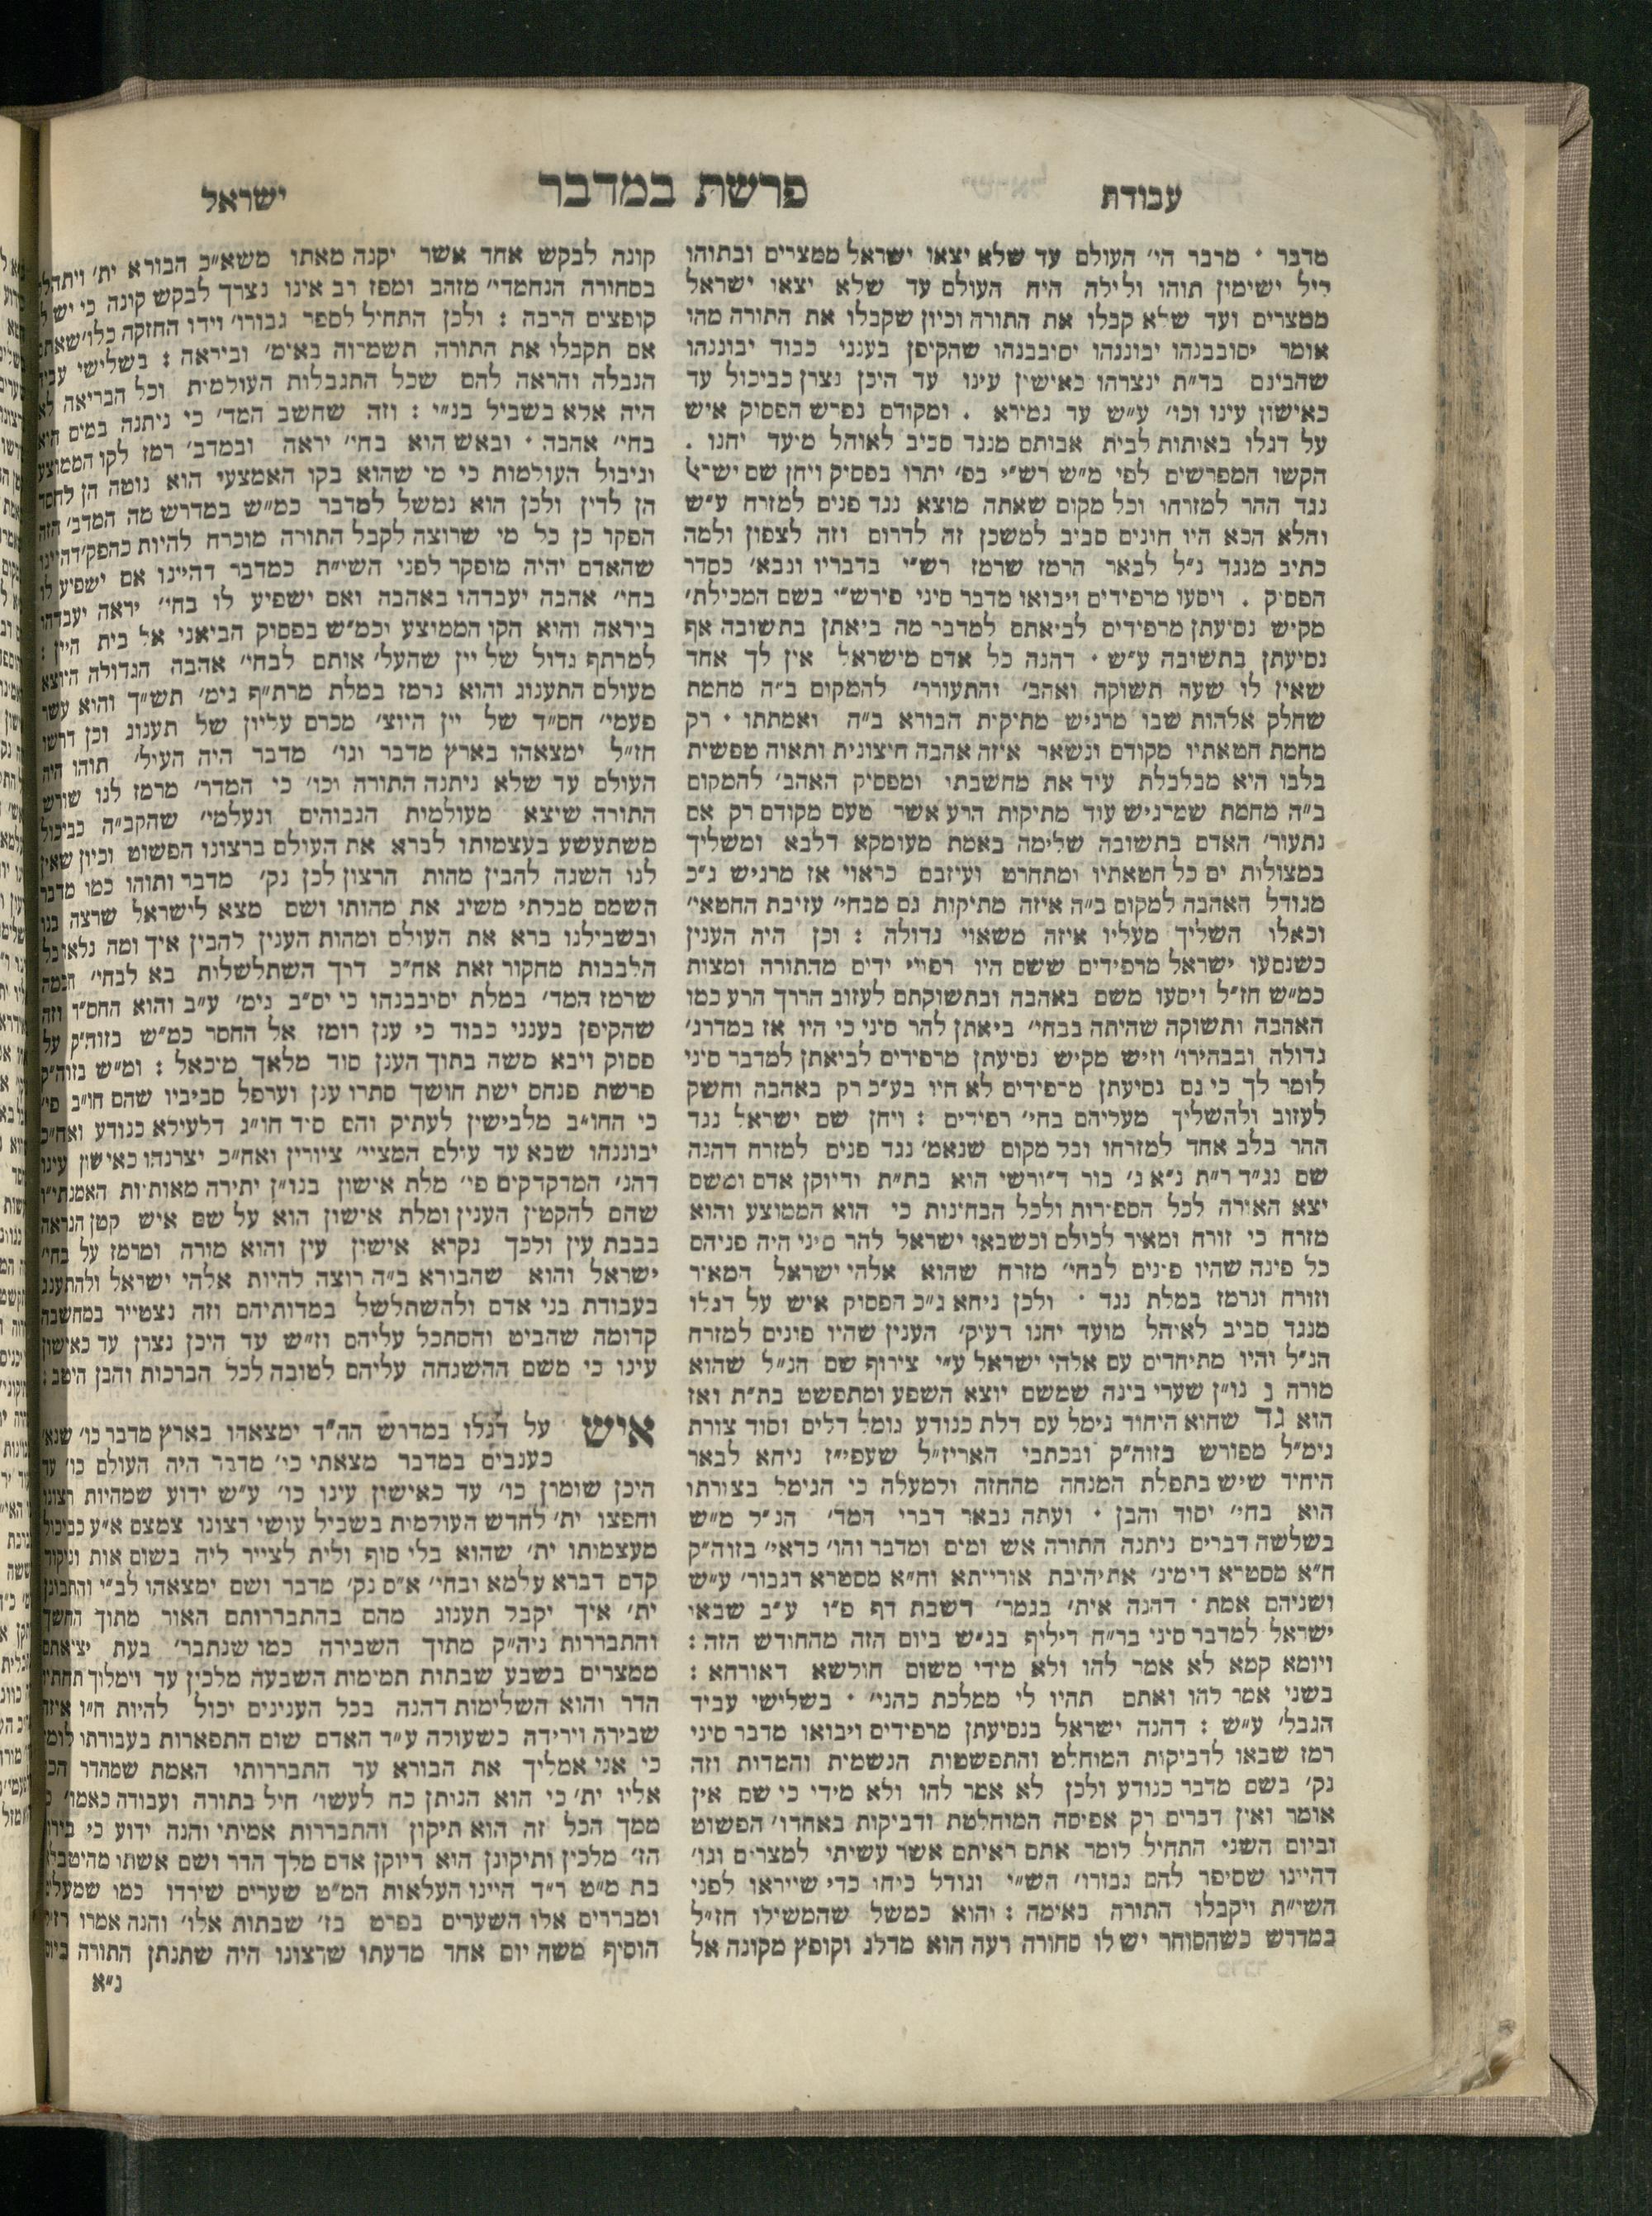 עבודת פרשת במדבר ישראל
מדבר · מדבר הי׳ העולם עד שלא יצאו ישראל ממצרים ובתוהו
יליל ישימון תוהו ולילה היה העולם עד שלא יצאו ישראל
ממצרים ועד שלא קבלו את התורה וכיון שקבלו את התורה מהו
אומר יסובבנהו יבוננהו יסובבנהו שהקיפן בענני כבוד יבוננהו
שהבינם בד״ת יצרהו כאישון עינו עד היכן נצרן כביכול עד
כאישון עינו וכו׳ ע״ש עד גמירא . ומקודם נפרש הפסוק איש
על דגלו באותות לבית אבותם מנגד סביב לאוהל מועד יחנו .
הקשו המפרשים לפי מ״ש רש״י בפ׳ יתרו בפסוק ויחן שם ישראל
נגד ההר למזרחו וכל מקום שאתה מוצא נגד פנים למזרח ע״ש
והלא הכא היו חונים סביב למשכן זה לדרום וזה לצפון ולמה
כתיב מנגד נ״ל לבאר הרמז שרמז רש״י בדבריו ונבא׳ כסדר
הפסוק . ויסעו מרפידים ויבואו מדבר סיני פירש״י בשם המכילת׳
מקיש נסיעתן מרפידים לביאתם למדבר מה ביאתן בתשובה אף
נסיעתן בתשובה ע״ש · דהנה כל אדם מישראל אין לך אחד
שאין לו שעה תשוקה ואהב׳ והתעורר׳ להמקום ב״ה מחמת
שחלק אלהות שבו מרגיש מתיקות הבורא ב״ה ואמתתו · רק
מחמת חטאתיו מקודם ונשאר איזה אהבה חיצונית ותאוה טפשית
בלבו היא מבלבלת עוד את מחשבתו ומפסיק האהב׳ להמקום
ב״ה מחמת שמרגיש עוד מתיקות הרע אשר טעם מקודם רק אם
נתעור׳ האדם בתשובה שלימה באמת מעומקא דלבא ומשליך
במצולות ים כל חטאתיו ומתחרט ועוזבם כראוי אז מרגיש ג״כ
מגודל האהבה למקום ב״ה איזה מתיקות גם מבחי׳ עזיבת החטאי׳
וכאלו השליך מעליו איזה משאוי גדולה : וכן היה הענין
כשנסעו ישראל מרפידים ששם היו רפויי ידים מהתורה ומצות
כמ״ש חז״ל ויסעו משם באהבה ובתשוקתם לעזוב הדרך הרע כמו
האהבה ותשוקה שהיתה בבחי׳ ביאתן להר סיני כי היו אז במדרג׳
גדולה ובבהירו׳ וזיש מקיש נסיעתן מרפידים לביאתן למדבר סיני
לומר לך כי גם נסיעתן מרפידים לא היו בע״כ רק באהבה וחשק
לעזוב ולהשליך מעליהם בחי׳ רפידים : ויחן שם ישראל נגד
ההר בלב אחד למזרחו וכל מקום שנאמ׳ נגד פנים למזרח דהנה
שם נג״ד ר״ת נ״א ג׳ בור ד״ורשי הוא בת״ת ודיוקן אדם ומשם
יצא האורה לכל הספירות ולכל הבחינות כי הוא הממוצע והוא
מזרח כי זורח ומאיר לכולם וכשבאו ישראל להר סיני היה פניהם
כל פינה שהיו פונים לבחי׳ מזרח שהוא אלהי ישראל המאיר
וזורח ונרמז במלת נגד · ולכן ניחא ג״כ הפסוק איש על דגלו
מנגד סביב לאוהל מועד יחנו דעיק׳ הענין שהיו פונים למזרח
הנ״ל והיו מתיחדים עם אלהי ישראל ע״י צירוף שם הנ״ל שהוא
מורה נ נו״ן שערי בינה שמשם יוצא השפע ומתפשט בת״ת ואז
הוא גד שהוא היחוד גימל עם דלת כנודע גומל דלים וסוד צורת
גימ״ל מפורש בזוה״ק ובכתבי האריז״ל שעפי״ז ניחא לבאר
היחיד שיש בתפלת המנחה מהחזה ולמעלה כי הגימל בצורתו
הוא בחי׳ יסוד והבן · ועתה נבאר דברי המד׳ הנ״ל מ״ש
בשלשה דברים ניתנה התורה אש ומים ומדבר והו׳ כדאי׳ בזוה״ק
ח״א מסטרא דימינ׳ אתיהיבת אורייתא וח״א מסטרא דגבור׳ ע״ש
ושניהם אמת · דהנה אית׳ בגמר׳ דשבת דף פ״ו ע״ב שבאו
ישראל למדבר סיני בר״ח דיליף בג״ש ביום הזה מהחודש הזה :
ויומא קמא לא אמר להו ולא מידי משום חולשא דאורחא :
בשני אמר להו ואתם תהיו לי ממלכת כהני׳ · בשלישי עביד
הגבל׳ ע״ש : דהנה ישראל בנסיעתן מרפידים ויבואו מדבר סיני
רמז שבאו לדביקות המוחלט והתפשטות הגשמית והמדות וזה
נק׳ בשם מדבר כנודע ולכן לא אמר להו ולא מידי כי שם אין
אומר ואין דברים רק אפיסה המוחלטת ודביקות באחדו׳ הפשוט
וביום השני התחיל לומר אתם ראיתם אשר עשיתי למצרים וגו׳
דהיינו שסיפר להם גבורו׳ הש״י וגודל כיחו כדי שייראו לפני
השי״ת ויקבלו התורה באימה : יהוא כמשל שהמשילו חז״ל
במדרש כשהסוחר יש לו סחורה רעה הוא מדלג וקופץ מקונה אל
קונה לבקש אחד אשר יקנה מאתו משא״כ הבורא ית׳
בסחורה הנחמדי׳ מזהב ומפז רב אינו נצרך לבקש קונה כי יש
קופצים הרבה : ולכן התחיל לספר גבורו׳ וידו החזקה כלו׳
אם תקבלו את התורה תשמיוה באימ׳ וביראה : בשלישי
הגבלה והראה להם שכל התגבלות העולמית וכל הבריאה לא
היה אלא בשביל בנ״י : וזה שחשב המד׳ כי ניתנה במים
בחי׳ אהבה · ובאש הוא בחי׳ יראה ובמדב׳ רמז לקו הממוצע
וגיבול העולמות כי מי שהוא בקו האמצעי הוא נוטה הן לחסד
הן לדין ולכן הוא נמשל למדבר כמ״ש במדרש מה המדב׳ הזה
הפקר כן כל מי שרוצה לקבל התורה מוכרח להיות כהפק׳
שהאדם יהיה מופקר לפני השי״ת כמדבר דהיינו אם ישפיע לו
בחי׳ אהבה יעבדהו באהבה ואם ישפיע לו בחי׳ יראה יעבדהו
ביראה והוא הקו הממוצע יכמ״ש בפסוק הביאני אל בית היין :
למרתף גדול של יין שהעל׳ אותם לבחי׳ אהבה הגדולה היוצא
מעולם התענוג והוא נרמז במלת מרת״ף גימ׳ תש״ך והוא עשר
פעמי׳ חס״ד של יין היוצ׳ מכרם עליון של תענוג וכן דרשו
חז״ל ימצאהו בארץ מדבר וגו׳ מדבר היה העול׳ תוהו היה
העולם עד שלא ניתנה התורה וכו׳ כי המדר׳ מרמז לנו שורש
התורה שיצא מעולמות הגבוהים ונעלמי׳ שהקב״ה כביכול
משתעשע בעצמותו לברא את העולם ברצונו הפשוט וכיון שאין
לנו השגה להבין מהות הרצון לכן נק׳ מדבר ותוהו כמו מדבר
השמם מבלתי משיג את מהותו ושם מצא לישראל שרצה בנו
ובשבילנו ברא את העולם ומהות הענין להבין איך ומה נלאו כל
הלבבות מחקור זאת אח״כ דרך השתלשלות בא לבחי׳ חכמה
שרמז המד׳ במלת יסובבנהו כי יס״ב גימ׳ ע״ב והוא החס״ד וזה
שהקיפן בענני כבוד כי ענן רומז אל החסד כמ״ש בזוה״ק על
פסוק ויבא משה בתוך הענן סוד מלאך מיכאל : ומ״ש בזוה״ק
פרשת פנחס ישת חושך סתרו ענן וערפל סביביו שהם חו״ב פי׳
כי החו״ב מלבישין לעתיק והם סיד חו״ג דלעילא כנודע ואח״כ
יבוננהו שבא עד עילם המציי׳ ציורין ואח״כ יצרנהו כאישון עינו
דהנ׳ המדקדקים פי׳ מלת אישון בנו״ן יתירה מאותיות האמנתי״ו
שהם להקטין הענין ומלת אישון הוא על שם איש קטן הנראה
בבבת עין ולכך נקרא אישון עין והוא מורה ומרמז על בחי׳
ישראל והוא שהבורא ב״ה רוצה להיות אלהי ישראל ולהתענג
בעבודת בני אדם ולהשתלשל במדותיהם וזה נצטייר במחשבה
קדומה שהביט והסתכל עליהם וז״ש עד היכן נצרן עד כאישון
עינו כי משם ההשגחה עליהם לטובה לכל הברכות והבן היטב :
איש על דגלו במדרש הה״ד ימצאהו בארץ מדבר כו׳ שנא׳
כענבים במדבר מצאתי כו׳ מדבר היה העולם כו׳ עד
היכן שומרן כו׳ עד כאישון עינו כו׳ ע״ש ידוע שמהיות רצונו
וחפצו ית׳ לחדש העולמית בשביל עושי רצונו צמצם א״ע כביכול
מעצמותו ית׳ שהוא בלי סוף ולית לצייר ליה בשום אות וניקוד
קדם דברא עלמא ובחי׳ א״ס נק׳ מדבר ושם ימצאהו לב״י והתבונן
ית׳ איך יקבל תענוג מהם בהתבררותם האור מתוך החשך
והתבררות ניה״ק מתוך השבירה כמו שנתבר׳ בעת יציאתם
ממצרים בשבע שבתות תמימות השבעה מלכין עד וימלוך תחתיו
הדר והוא השלימות דהנה בכל הענינים יכול להיות ח״ו איזה
שבירה וירידה כשעולה ע״ד האדם שום התפארות בעבודתו לומר
כי אני אמליך את הבורא עד התבררותי האמת שמהדר הכל
אליו ית׳ כי הוא הנותן כח לעשו׳ חיל בתורה ועבודה כאמו׳
ממך הכל זה הוא תיקון והתבררות אמיתי והנה ידוע כי
הז׳ מלכין ותיקונן הוא דיוקן אדם מלך הדר ושם אשתו מהיטבאל
בת מ״ט ר״ד היינו העלאות המ״ט שערים שירדו כמו שמעלין
ומבררים אלו השערים בפרט בז׳ שבתות אלו׳ והנה אמרו רז״ל
הוסיף משה יום אחד מדעתו שרצונו היה שתנתן התורה ביום
נ״א